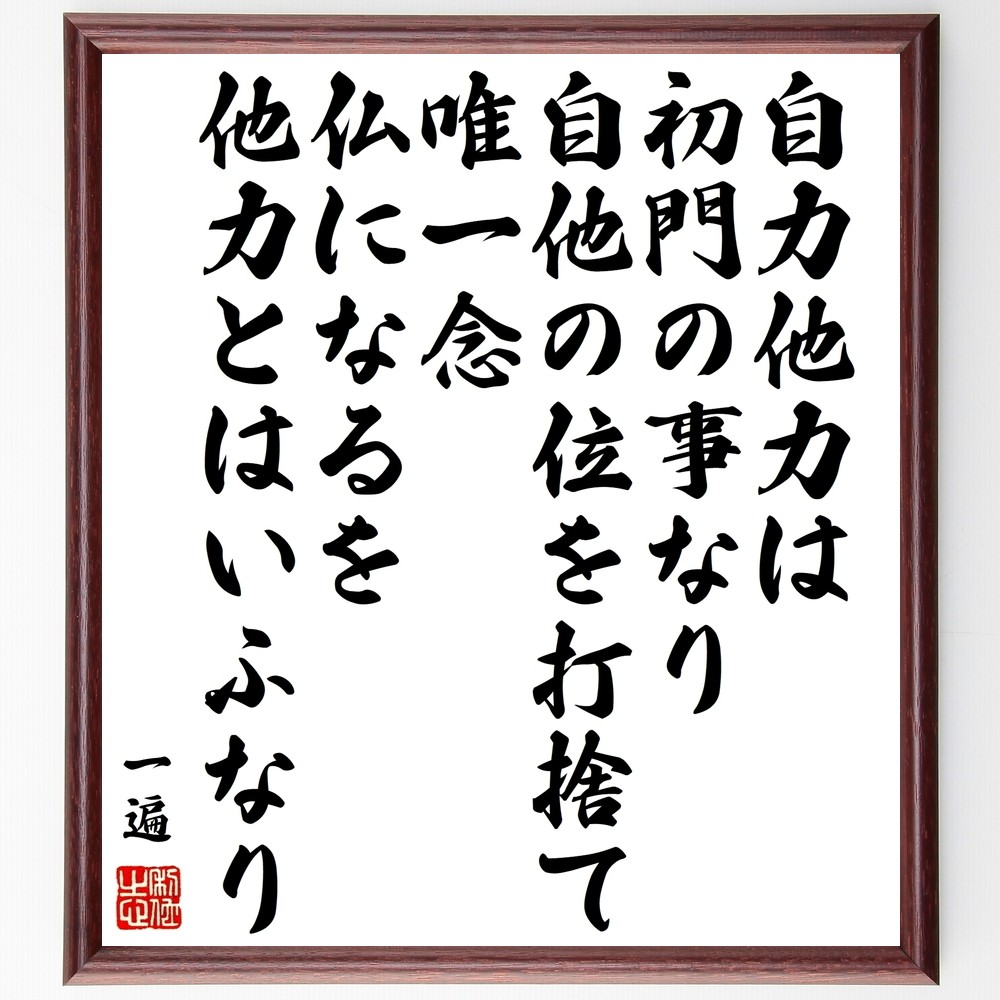 自力他力は
初門の事なり
自他の位を打捨て
唯一念
仏になるを
他力とはいふなり
一遍